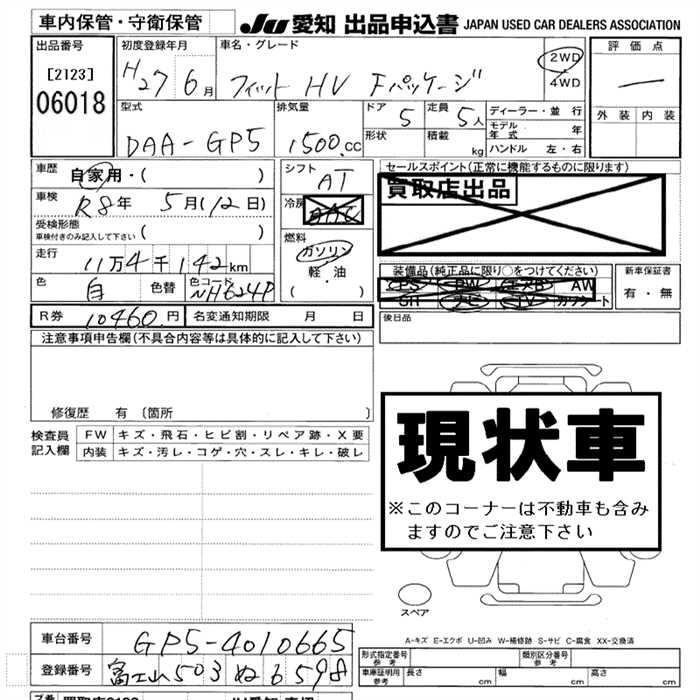 車内保管・守衛保管
JU愛知 出品申込書 JAPAN USED CAR DEALERS ASSOCIATION
出品番号 [2123] 06018
初度登録年月 H27 6月
車名・グレード フィット HV Fパッケージ
2WD
4WD
評価点 —
外装 内装
型式 DAA-GP5
排気量 1500.CC
ドア 5 定員 5人
形状 積載 kg
ディーラー・並行
モデル年式 年
ハンドル 左・右
車歴 自家用・( )
車検 R8年 5月(12日)
受検形態 ( )
車検付きのみ記入して下さい
走行 11万4千142km
色 白 色替 色コード NH624P
シフト AT
冷房 AAC
燃料 ガソリン
軽・油
( ・ )
セールスポイント(正常に機能するものに限ります)
買取店出品
装備品(純正品に限り○をつけてください)
PS PW エアB AW
SR ナビ TV カワシート
新車保証書
有・無
R券 10460円 名変通知期限 月 日
後日品
注意事項申告欄(不具合内容等は具体的に記入して下さい)
修復歴 有〔箇所 〕
検査員記入欄
FW キズ・飛石・ヒビ割・リペア跡・X要
内装 キズ・汚レ・コゲ・穴・スレ・キレ・破レ
現状車
※このコーナーは不動車も含み
ますのでご注意下さい
スペア
A-キズ E-エクボ U-凹み W-補修跡 S-サビ C-腐食 XX-交換済
車台番号 GP5-4010665
登録番号 富士山503 ぬ6598
形式指定番号 参考 類別区分番号 参考
車庫証明用 参考 長さ cm 幅 cm 高さ cm